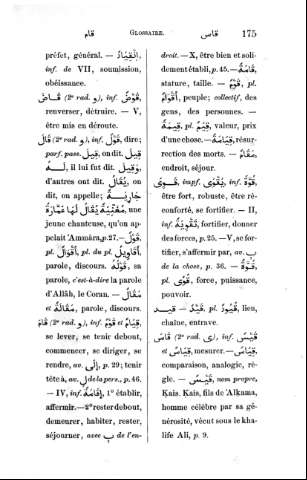 قام GLOSSAIRE. قاس 175
préfet, général. — اِنْقِيَادٌ,
inf. de VII, soumission,
obéissance.
قَاضَ (2ᵉ rad. و), inf. قَوْضٌ,
renverser, détruire. — V,
être mis en déroute.
قَالَ (2ᵉ rad. و), inf. قَوْلٌ, dire;
parf. pass. قِيلَ, on dit. قِيلَ
لَهُ, il lui fut dit. وَقِيلَ,
d'autres ont dit. يُقَالُ, on
dit, on appelle; جَارِيَةٌ
مُغَنِّيَةٌ يُقَالُ لَهَا عَمَّارَةُ, une
jeune chanteuse, qu'on ap-
pelait 'Ammâra, p. 27. — قَوْلٌ,
pl. أَقْوَالٌ, pl. du pl. أَقَاوِيلُ,
parole, discours. قَوْلُهُ, sa
parole, c'est-à-dire la parole
d'Allâh, le Coran. — مَقَالٌ
et مَقَالَةٌ, parole, discours.
قَامَ (2ᵉ rad. و), inf. قَوْمٌ et قِيَامٌ,
se lever, se tenir debout,
commencer, se diriger, se
rendre, av. إِلَى, p. 29; tenir
tête à, ac. de la pers., p. 46.
— IV, inf. إِقَامَةٌ, 1° établir,
affermir. — 2° rester debout,
demeurer, habiter, rester,
séjourner, avec ب de l'en-
droit. — X, être bien et soli-
dement établi, p. 45. — قَامَةٌ,
stature, taille. — قَوْمٌ, pl.
أَقْوَامٌ, peuple; collectif, des
gens, des personnes. —
قِيمَةٌ, pl. قِيَمٌ, valeur, prix
d'une chose. — قِيَامَةٌ, résur-
rection des morts. — مَقَامٌ,
endroit, séjour.
قَوِىَ, impf. يَقْوَى, inf. قُوَّةٌ,
être fort, robuste, être ré-
conforté, se fortifier. — II,
inf. تَقْوِيَةٌ, fortifier, donner
des forces, p. 25. — V, se for-
tifier, s'affermir par, av. ب
de la chose, p. 36. — قُوَّةٌ,
pl. قُوًى, force, puissance,
pouvoir.
قيد — قَيْدٌ, pl. قُيُودٌ, lien,
chaîne, entrave.
قَاسَ (2ᵉ rad. ى), inf. قَيْسٌ
et قِيَاسٌ, mesurer. — قِيَاسٌ,
comparaison, analogie, rè-
gle. — قَيْسٌ, nom propre,
Ḳais. Ḳais, fils de 'Alḳama,
homme célèbre par sa gé-
nérosité, vécut sous le kha-
life Ali, p. 9.